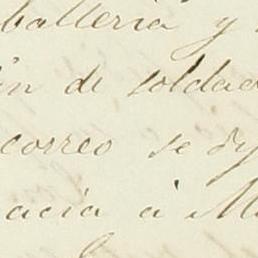 ballería y
ón de soldad
correo se dy
acia á M